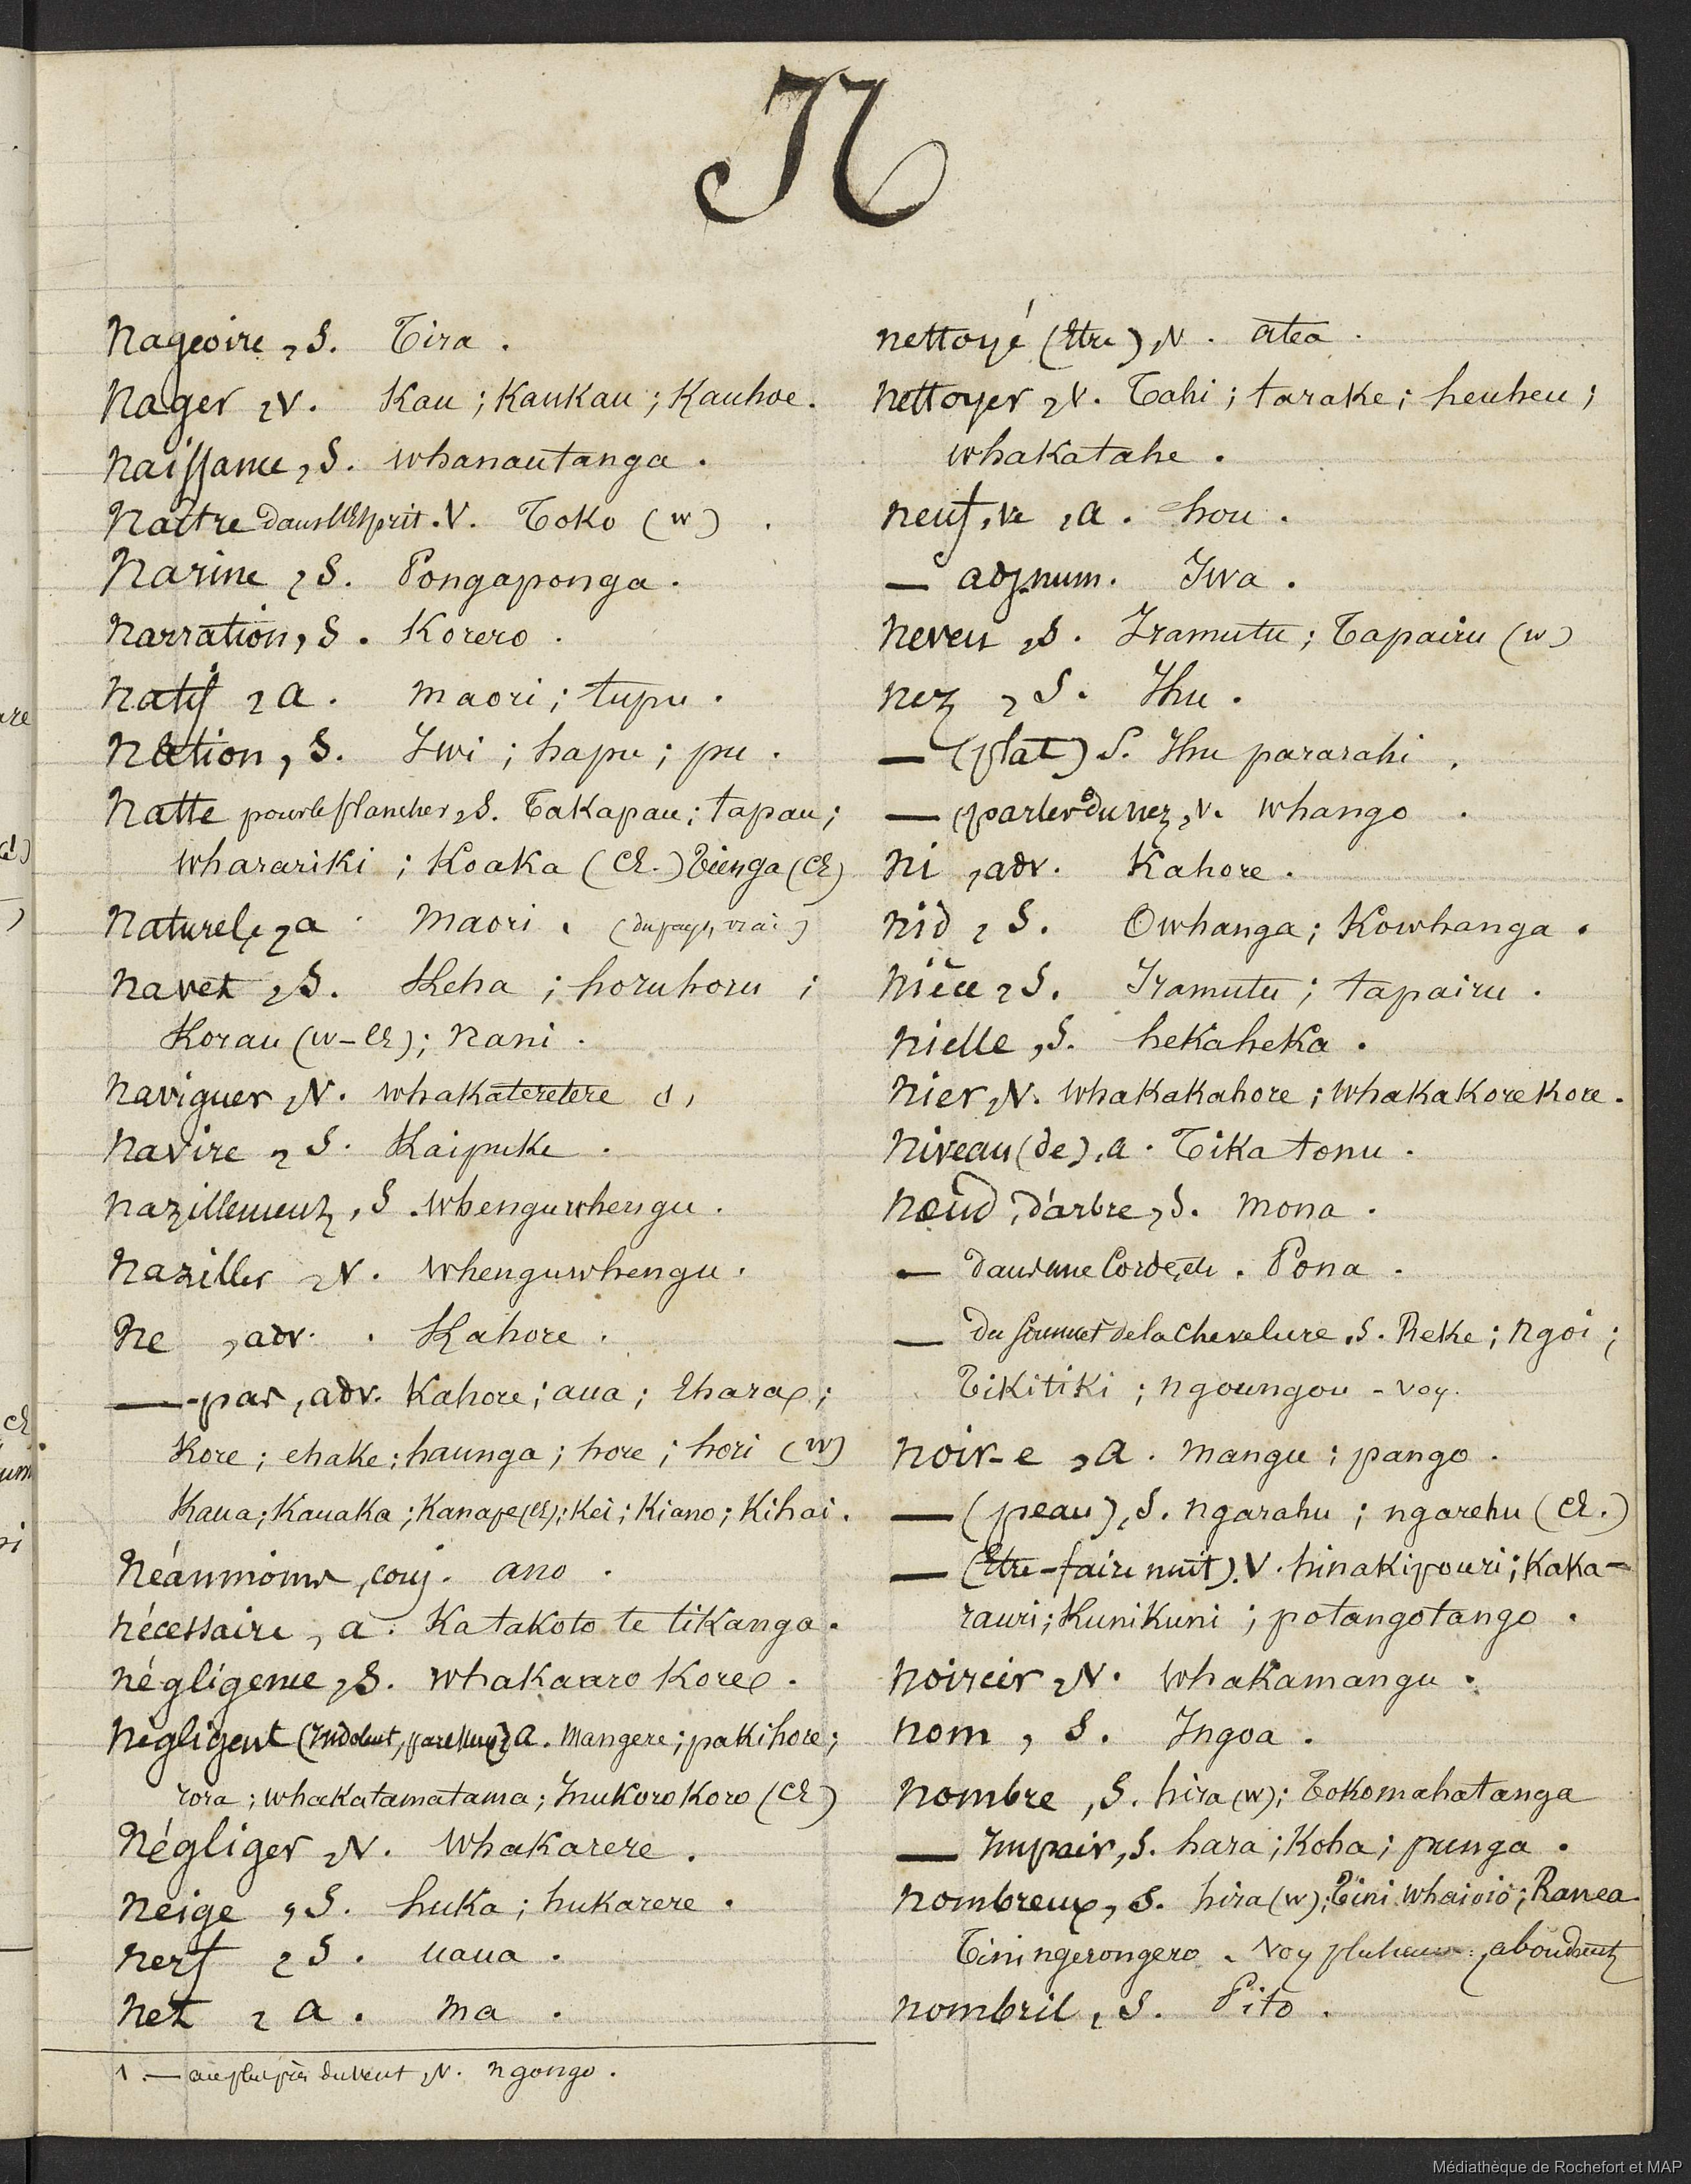 N
Nageoire, S. Tira.
Nager, V. Kau; Kaukau; Kauhoe.
Naissance, S. whanautanga.
Naître dans l'Esprit. V. Toko (w).
Narine, S. Pongaponga.
Narration, S. Korero.
Natif, a. maori; tupu.
Nation, S. Iwi; hapu; pu.
Natte pour le plancher, S. Takapau; tapau;
wharariki; Koaka (Ch.) Tienga (Ch)
Naturel, e, a. Maori. (du pays, vrai)
Navet, S. Keha; horuhoru;
Korau (w-Ch); Nani.
Naviguer, V. whakateretere (1)
Navire, S. Kaipuke.
Nazillement, S. whenguwhengu.
Naziller, V. whenguwhengu.
Ne, adv. Kahore.
— pas, adv. Kahore; aua; Ehara;
Kore; ehake; haunga; hore; hori (w)
Kaua; Kauaka; Kanape (Ch); Kei; Kiano; Kihai.
Néanmoins, conj. ano.
nécessaire, a. Katakoto te tikanga.
négligence, S. whakaaro Kore.
négligent (Indolent, paresseux) a. Mangere; pakihore;
rora; whakatamatama; Inukorokoro (Ch)
Négliger, V. whakarere.
Neige, S. huka; hukarere.
Nerf, S. uaua.
Net, a. ma.
1. — au plus près du vent, V. ngongo.
nettoyé (Etre), V. atea.
nettoyer, V. Tahi; tarake; heuheu;
whakatahe.
neuf, ve, a. hou.
— adj. num. Iwa.
neveu, S. Iramutu; Tapairu (w)
nez, S. Ihu.
— (plat) S. Ihu pararahi.
— (parler du nez, V. whango.
Ni, adv. Kahore.
Nid, S. Owhanga; Kowhanga.
Nièce, S. Iramutu; tapairu.
Nielle, S. hekaheka.
Nier, V. whakakahore; whakakorekore.
Niveau (de), a. Tika tonu.
Nœud, d'arbre, S. mona.
— dans une Corde, etc. Pona.
— du sommet de la chevelure, S. Reke; Ngoi;
Tikitiki; ngoungou - voy.
Noir-e, a. Mangu; pango.
— (peau), S. ngarahu; ngarehu (Ch.)
— (Etre-faire nuit). V. hinakipouri; Kaka-
rauri; Kunikuni; potangotango.
Noircir, V. whakamangu.
Nom, S. Ingoa.
Nombre, S. hira (w); Tokomahatanga
— Impair, S. hara; Koha; punga.
Nombreux, S. hira (w); Tini whaioio; Ranea
Tini ngerongero. Voy plusieurs, abondant
Nombril, S. Pito.
Médiathèque de Rochefort et MAP